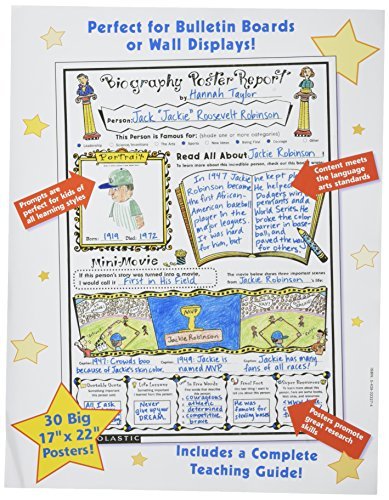 Perfect for Bulletin Boards
or Wall Displays!
Biography Poster Report
by Hannah Taylor
Person: Jack "Jackie" Roosevelt Robinson
This Person is Famous for: (shade one or more categories)
Leadership
Science/Inventions
The Arts
Sports
New Ideas
Being First
Courage
Other
Portrait
Born: 1919 Died: 1972
Read All About Jackie Robinson!
To learn more about this incredible person, check out this book
In 1947 Jackie
Robinson became
the first African-
American baseball
player in the
major leagues.
It was hard
for him, but
he kept
He helped
Dodgers win
pennants and a
World Series. He
broke the color
barrier in base-
ball, and
paved the way
for others.
Prompts are
perfect for kids of
all learning styles
Content meets
the language
arts standards
Mini-Movie
If this person's story was turned into a movie,
I would call it First in His Field
The movie below shows three important scenes
from Jackie Robinson's life.
MVP
Jackie Robinson
Caption: 1947: Crowds boo
because of Jackie's skin color.
Caption: 1949: Jackie is
named MVP.
Caption: Jackie has many
fans of all races!
Quotable Quote
Life Lesson
In Few Words
Final Fact
Player Resources
All I ask
Never
give up your
DREAM.
courageous
athletic
determined
competitive
brave
He was
famous for
stealing bases
30 Big
17" x 22"
Posters!
SCHOLASTIC
Posters promote
great research
skills
Includes a Complete
Teaching Guide!